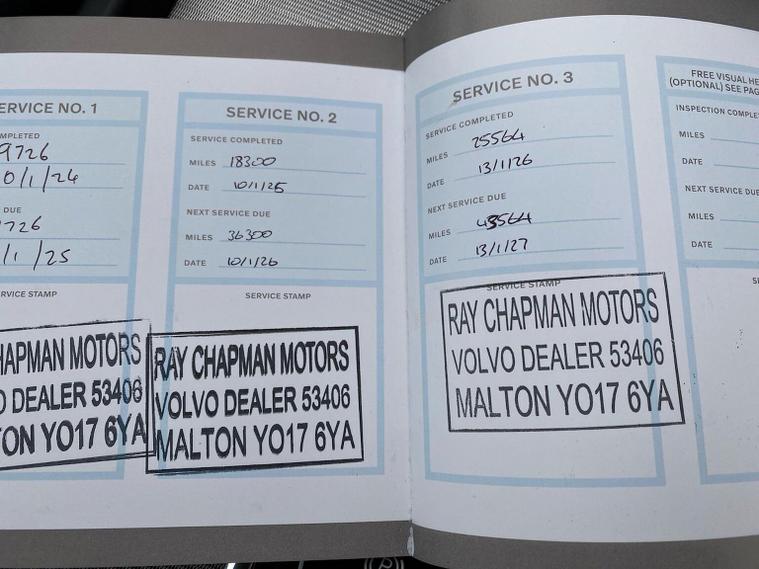 ERVICE NO. 1
MPLETED
9726
0/1/24
DUE
726
/1/25
RVICE STAMP
HAPMAN MOTORS
O DEALER 53406
ON YO17 6YA
SERVICE NO. 2
SERVICE COMPLETED
MILES 18300
DATE 10/1/25
NEXT SERVICE DUE
MILES 36300
DATE 10/1/26
SERVICE STAMP
RAY CHAPMAN MOTORS
VOLVO DEALER 53406
MALTON YO17 6YA
SERVICE NO. 3
SERVICE COMPLETED
MILES 25564
DATE 13/1/26
NEXT SERVICE DUE
MILES 43564
DATE 13/1/27
SERVICE STAMP
RAY CHAPMAN MOTORS
VOLVO DEALER 53406
MALTON YO17 6YA
FREE VISUAL HE
(OPTIONAL) SEE PAG
INSPECTION COMPLE
MILES
DATE
NEXT SERVICE DUE
MILES
DATE